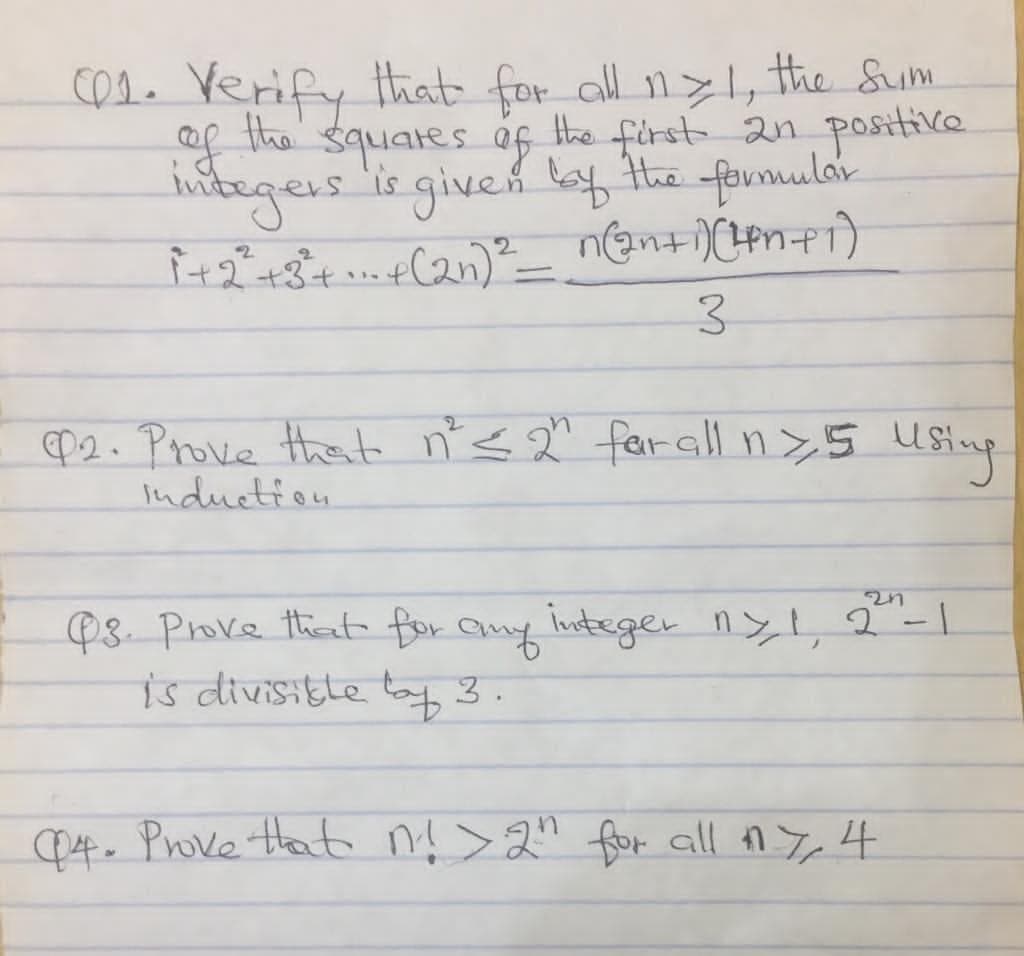 Q1. Verify that for all n ≥ 1, the sum
of the squares of the first 2n positive
integers is given by the formular
1² + 2² + 3² + ... + (2n)² = n(2n+1)(4n+1)
3
Q2. Prove that n² ≤ 2ⁿ for all n ≥ 5 Using
induction
Q3. Prove that for any integer n ≥ 1, 2²ⁿ - 1
is divisible by 3.
Q4. Prove that n! > 2ⁿ for all n ≥ 4